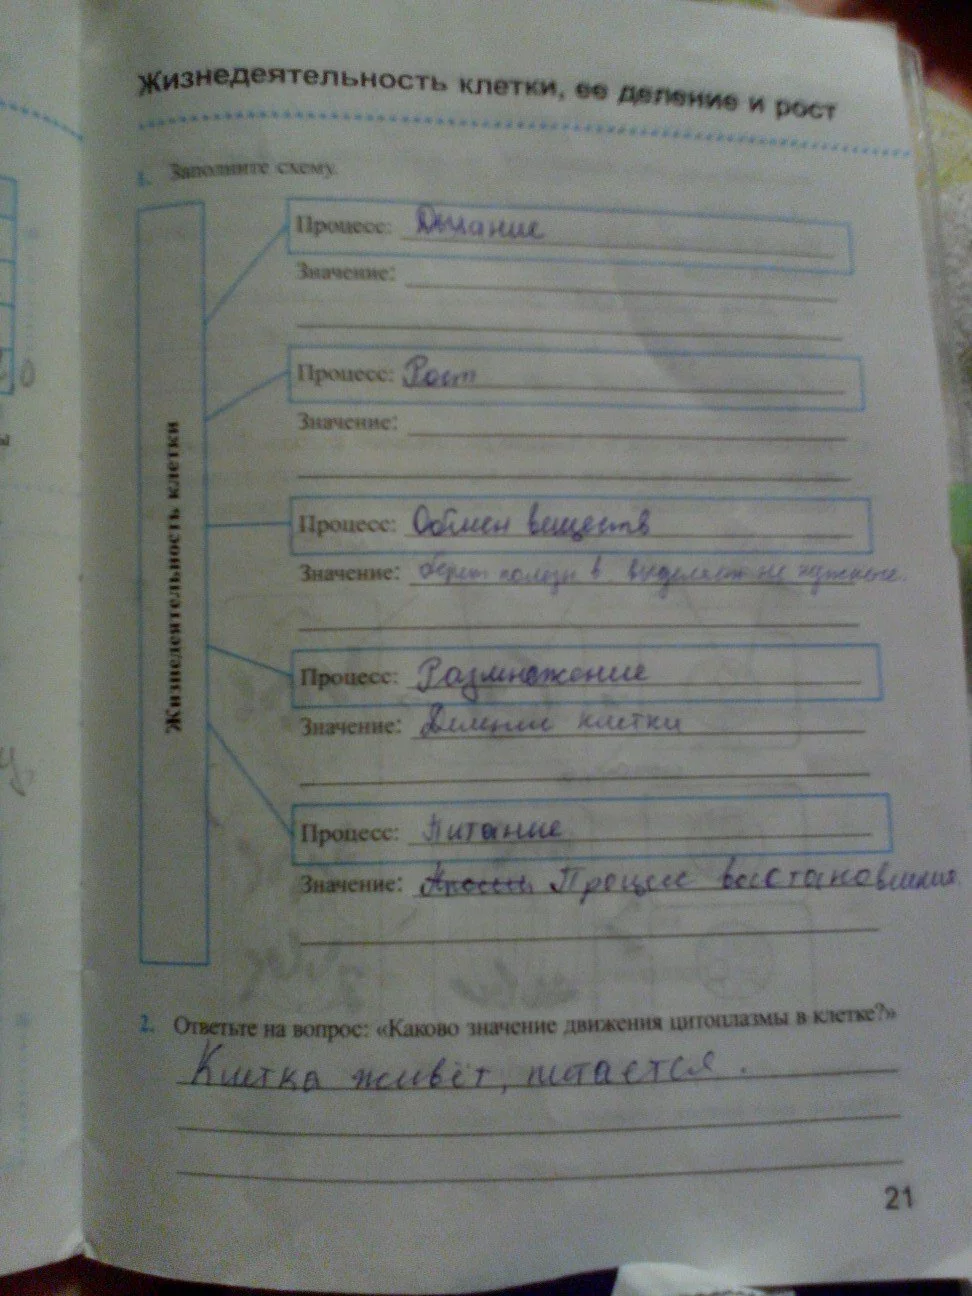 Жизнедеятельность клетки, ее деление и рост
1. Заполните схему.
Жизнедеятельность клетки
Процесс: Дыхание
Значение:
Процесс: Рост
Значение:
Процесс: Обмен веществ
Значение: берет в выделяет не нужные.
Процесс: Размножение
Значение: Деление клетки
Процесс: Питание
Значение: Процесс восстановления.
2. Ответьте на вопрос: «Каково значение движения цитоплазмы в клетке?»
Клетка живёт, питается.
21